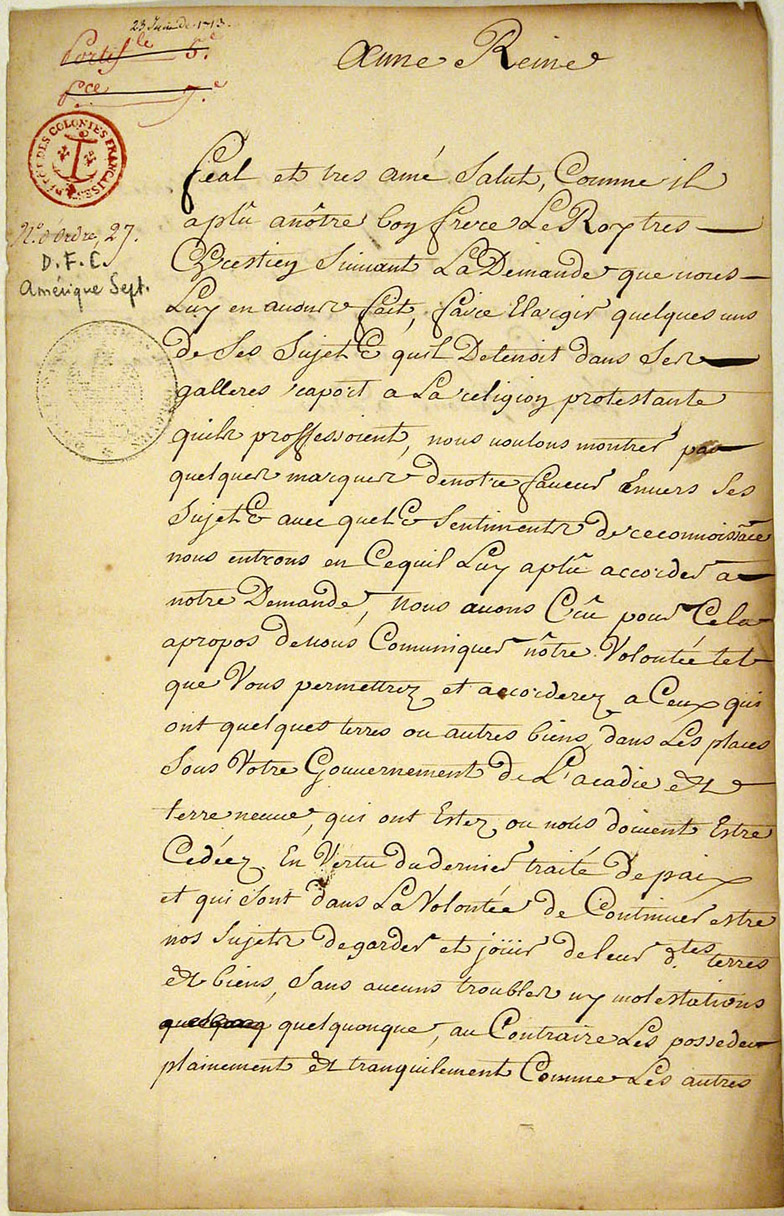 23 Juin de 1713.
Portef.le 5.e
P.ce 7.e
Anne Reine
DÉPÔT DES COLONIES FRANÇAISES
N.o d'ordre, 27.
D. F. C.
Amérique Sept.
feal et tres amé Salut, Comme il
a plû a nôtre bon frere Le Roy tres
Chrestien Suivant La Demande que nous
Luy en avons fait, faire Elargir quelques uns
de Ses Sujets quil Detenoit dans Ses
galleres raport a La religion protestante
quils proffessoient, nous voulons montrer par
quelques marques de notre faveur Envers Ses
Sujets avec quels Sentiments de reconnoissãce
nous entrons en Cequil Luy a plû accorder a
notre Demande, Nous avons Crû pour Cela
apropos de vous Comuniquer nôtre Volontée tel
que Vous permettrez et accorderez a Ceux qui
ont quelques terres ou autres biens dans Les places
Sous Votre Gouvernement de L'acadie et
terre neuve, qui ont Estez ou nous doivent Estre
Cedéez En Vertu du dernier traité De paix
et qui Sont dans La Volontée de Continuer estre
nos Sujets de garder et joüir de leur d.tes terres
et biens, Sans aucuns troubles ny molestations
quelquonque, au Contraire Les posseder
plainement et tranquilement Comme Les autres